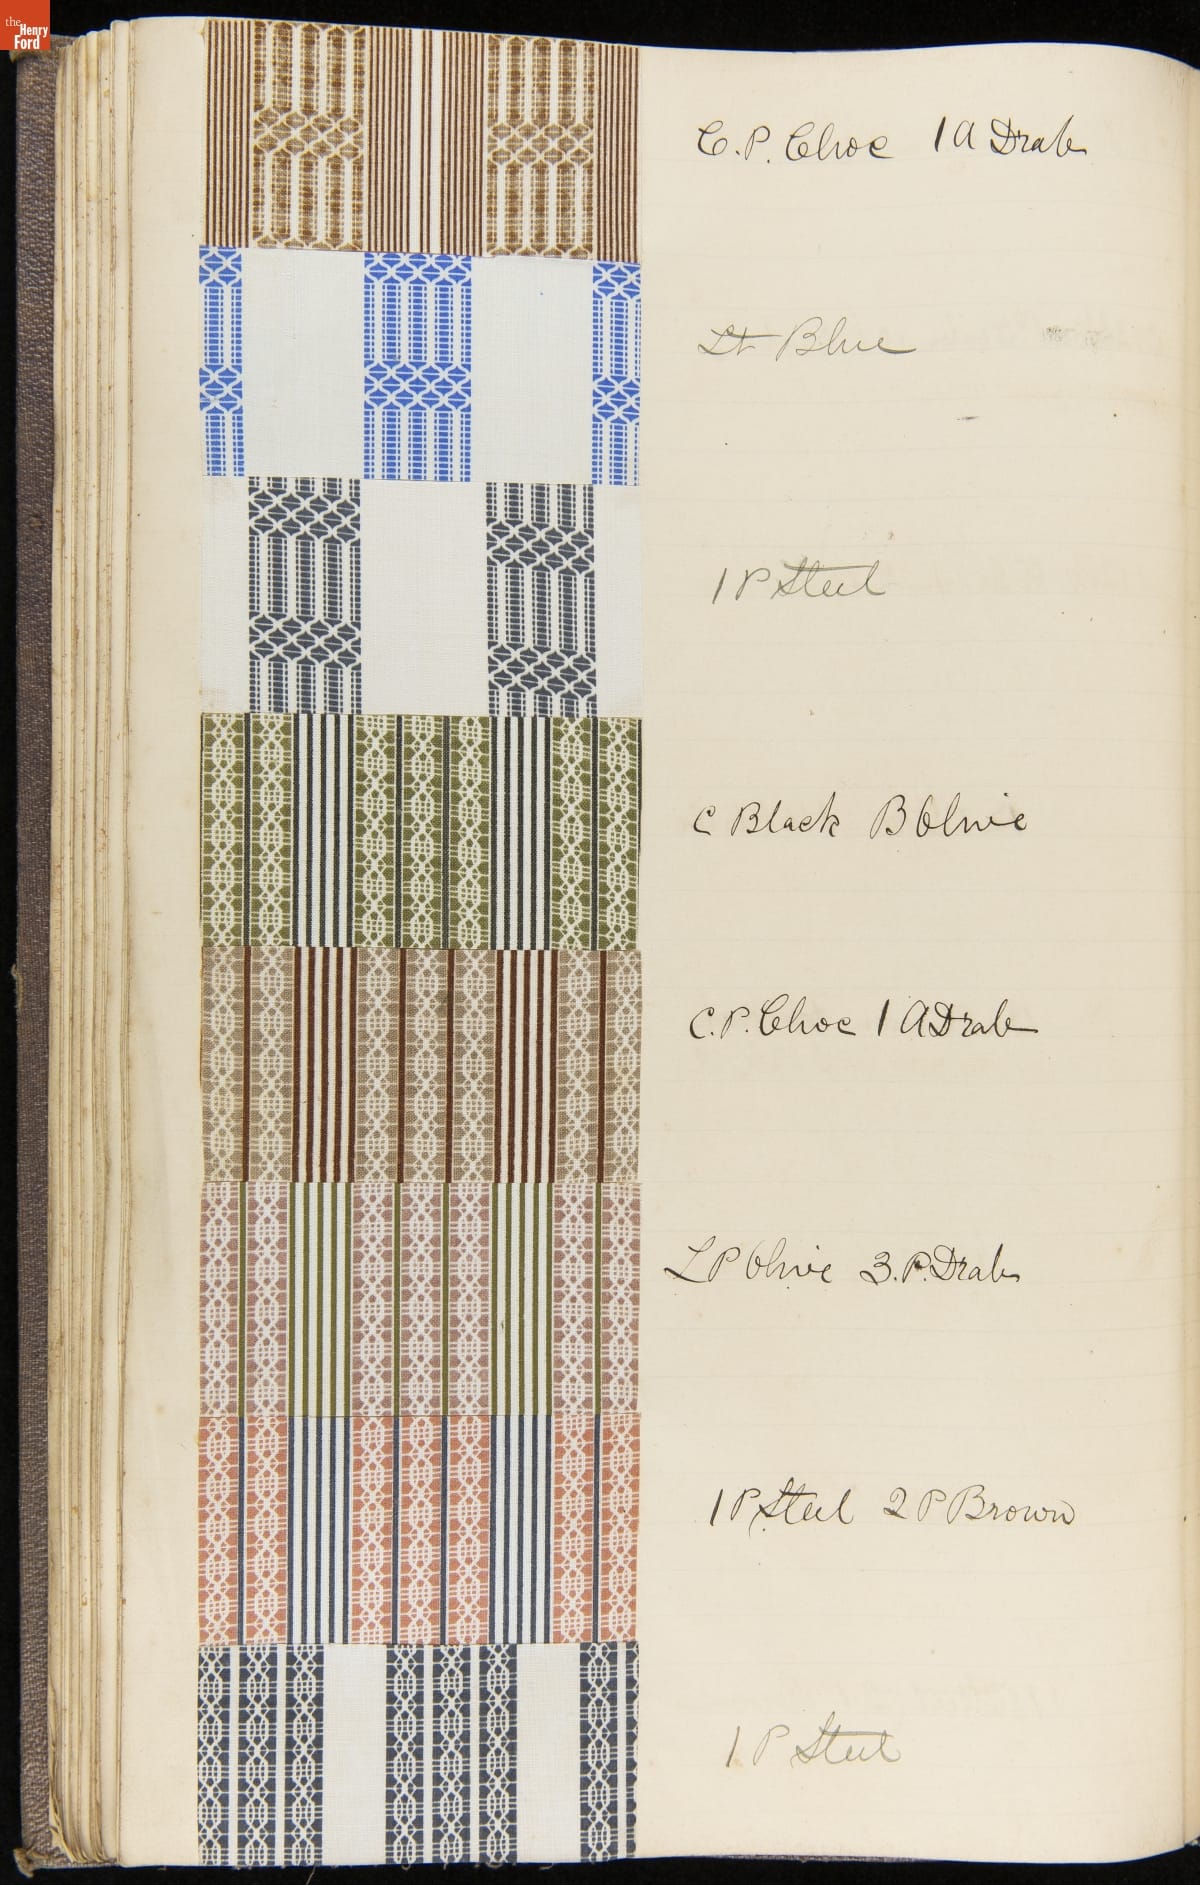 the Henry Ford
C.P. Choc 1 A Drab
Lt Blue
1 P Steel
C Black B Olive
C.P. Choc 1 A Drab
L P Olive 3.P. Drab
1 P Steel 2 P Brown
1 P Steel